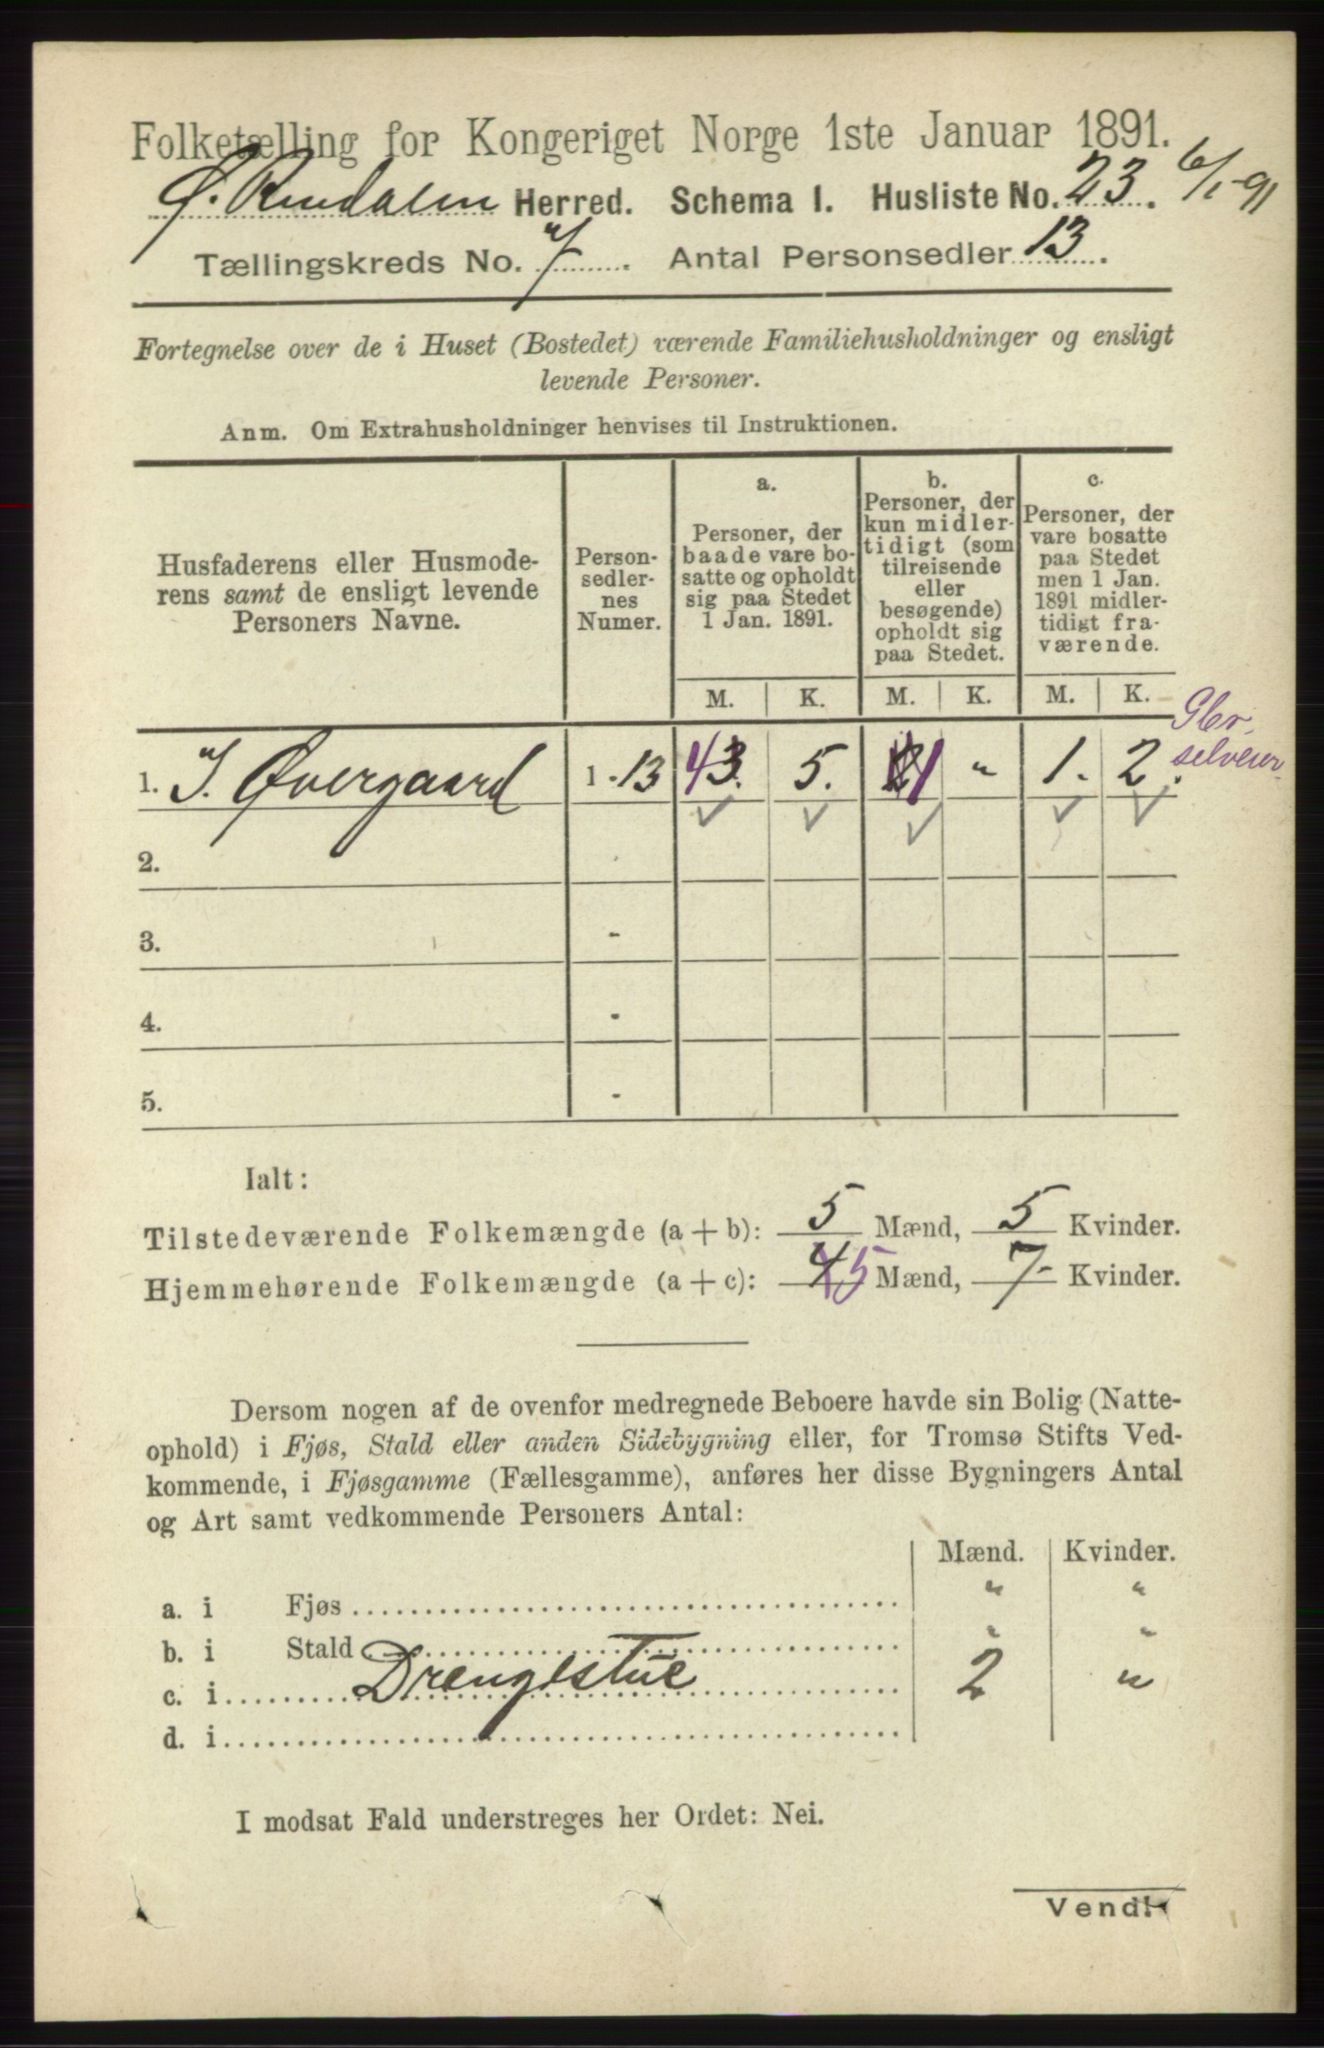 Folketælling for Kongeriget Norge 1ste Januar 1891.
Ø. Rendalen Herred. Schema I. Husliste No. 23. 6/1-91
Tællingskreds No. 7. Antal Personsedler 13.
Fortegnelse over de i Huset (Bostedet) værende Familiehusholdninger og ensligt
levende Personer.
Anm. Om Extrahusholdninger henvises til Instruktionen.
Husfaderens eller Husmode-
rens samt de ensligt levende
Personers Navne.
Person-
sedler-
nes
Numer.
a.
Personer, der
baade vare bo-
satte og opholdt
sig paa Stedet
1 Jan. 1891.
b.
Personer, der
kun midler-
tidigt (som
tilreisende
eller
besøgende)
opholdt sig
paa Stedet.
c.
Personer, der
vare bosatte
paa Stedet
men 1 Jan.
1891 midler-
tidigt fra-
værende.
M. K. M. K. M. K.
1. Øvergaard 1-13 4 5. 1 " 1. 2. Gbr. selveier
2.
3. -
4. -
5. -
Ialt:
Tilstedeværende Folkemængde (a + b): 5 Mænd, 5 Kvinder.
Hjemmehørende Folkemængde (a + c): 4 5 Mænd, 7- Kvinder.
Dersom nogen af de ovenfor medregnede Beboere havde sin Bolig (Natte-
ophold) i Fjøs, Stald eller anden Sidebygning eller, for Tromsø Stifts Ved-
kommende, i Fjøsgamme (Fællesgamme), anføres her disse Bygningers Antal
og Art samt vedkommende Personers Antal:
Mænd. Kvinder.
a. i Fjøs " "
b. i Stald " "
c. i Drengestue 2 "
d. i
I modsat Fald understreges her Ordet: Nei.
Vend!